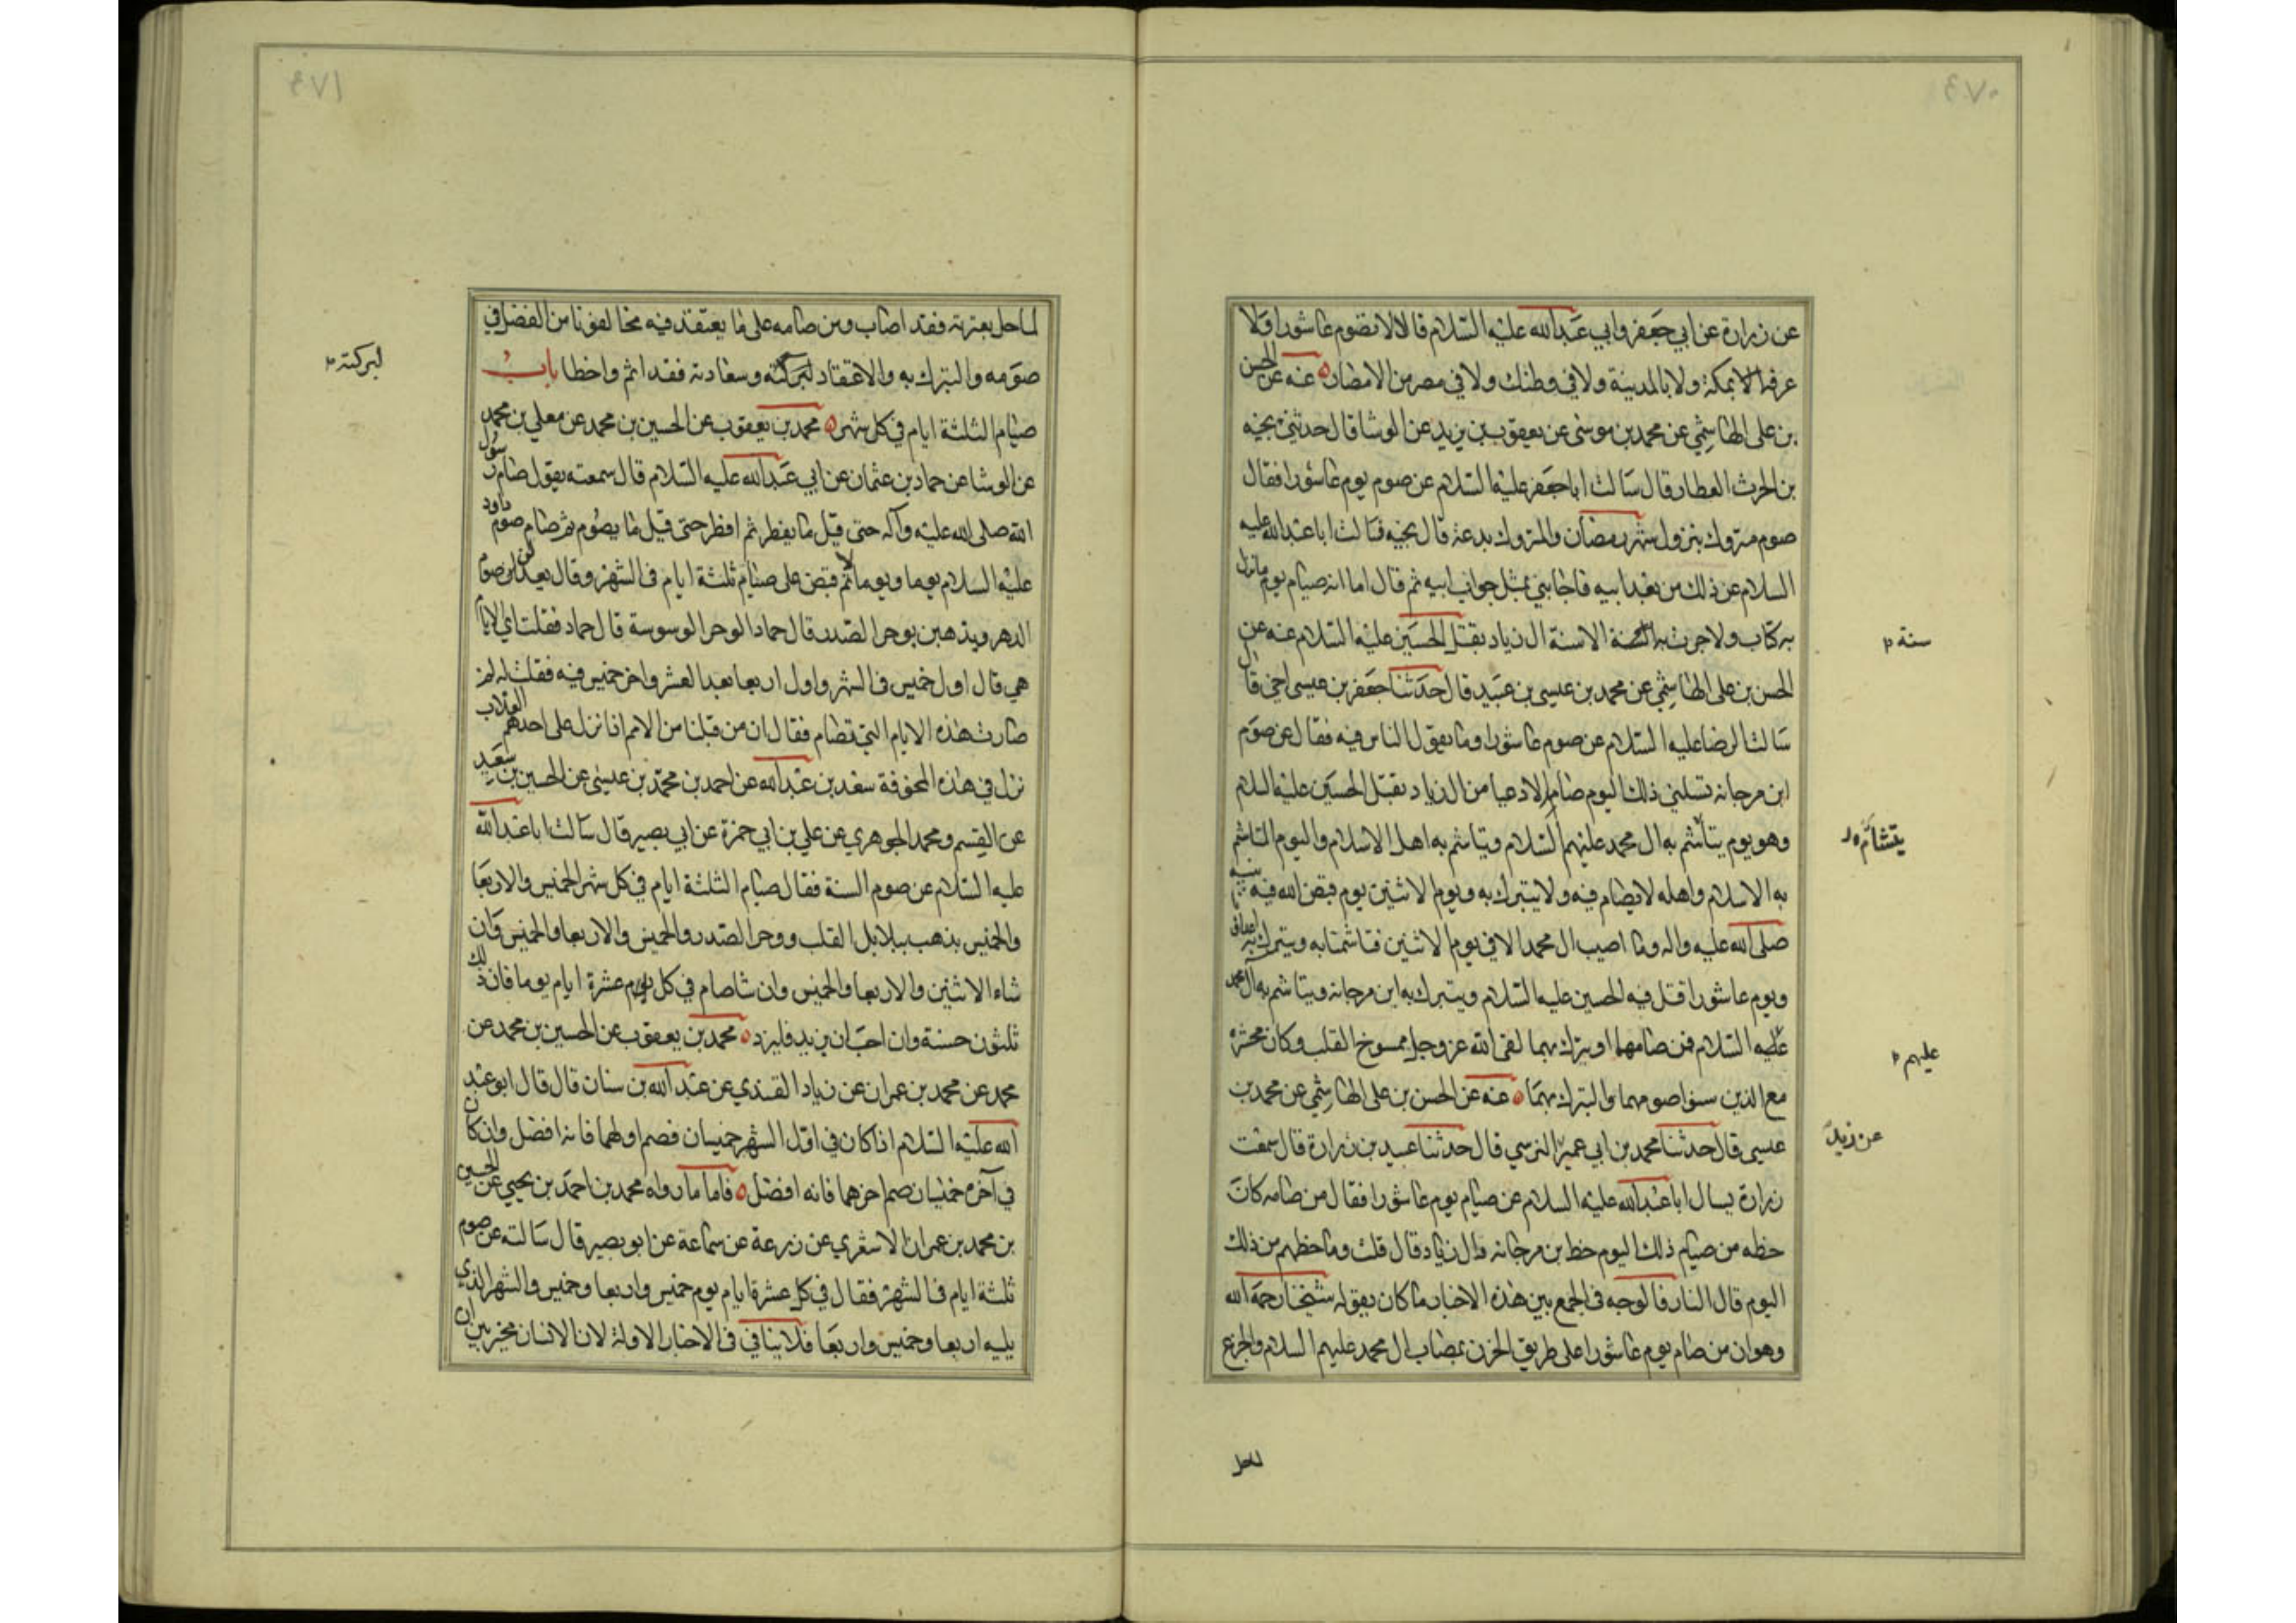 عن زرارة عن ابي جعفر وابي عبدالله عليه السلام قالا لا تصوم عاشورا ولا
عرفة لا بمكة ولا بالمدينة ولا في وطنك ولا في مصر من الامصار عنه عن الحسن
بن علي الهاشمي عن محمد بن موسى عن يعقوب بن يزيد عن الوشا قال حدثني نجيه
بن الحرث العطار قال سالت ابا جعفر عليه السلام عن صوم يوم عاشورا فقال
صوم متروك بنزول شهر رمضان والمتروك بدعة قال نجيه فسالت ابا عبدالله عليه
السلام عن ذلك من بعد ابيه فاجابني بمثل جواب ابيه ثم قال اما انه صيام يوم ما نزل
به كتاب ولا جرت به السنة الا سنة ال زياد بقتل الحسين عليه السلام عنه عن
الحسن بن علي الهاشمي عن محمد بن عيسى بن عبيد قال حدثنا جعفر بن عيسى اخي قال
سالت الرضا عليه السلام عن صوم عاشورا وما يقول الناس فيه فقال عن صوم
ابن مرجانه تسلني ذلك اليوم صامه الادعيا من ال زياد بقتل الحسين عليه السلام
وهو يوم يتأشم به ال محمد عليهم السلام ويتاشم به اهل الاسلام واليوم المتاشم
به الاسلام واهله لا يصام فيه ولا يتبرك به ويوم الاثنين يوم قبض الله فيه نبيه
صلى الله عليه واله وما اصيب ال محمد الا في يوم الاثنين فتاشمنا به ويتبرك به اعداؤنا
ويوم عاشورا قتل فيه الحسين عليه السلام ويتبرك به ابن مرجانه ويتاشم به آل محمد
عليه السلام فمن صامهما او يترك بهما لقي الله عز وجل ممسوخ القلب وكان محشره
مع الذين سنوا صومهما والتبرك بهما عنه عن الحسن بن علي الهاشمي عن محمد بن
عيسى قال حدثنا محمد بن ابي عمير النرسي قال حدثنا عبيد بن زرارة قال سمعت
زرارة يسال ابا عبدالله عليه السلام عن صيام يوم عاشورا فقال من صامه كان
حظه من صيام ذلك اليوم حظ بن مرجانه وال زياد قال قلت وما حظهم من ذلك
اليوم قال النار فالوجه في الجمع بين هذه الاخبار ما كان يقوله شيخنا رحمه الله
وهو ان من صام يوم عاشورا على طريق الحزن بمصاب ال محمد عليهم السلام والجزع
سنة
يتشأم
عليهم
عن زيد
لما حل
لما حل بعترته فقد اصاب ومن صامه على ما يعتقد فيه مخالفونا من الفضل في
صومه والتبرك به والاعتقاد لبركته وسعادته فقد اثم واخطا باب
صيام الثلثة ايام في كل شهر محمد بن يعقوب عن الحسين بن محمد عن معلي بن محمد
عن الوشا عن حماد بن عثمان عن ابي عبدالله عليه السلام قال سمعته يقول صام رسول
الله صلى الله عليه وآله حتى قيل ما يفطر ثم افطر حتى قيل ما يصوم ثم صام صوم داود
عليه السلام يوما ويوما لا ثم قبض على صيام ثلثة ايام في الشهر وقال يعدلن صوم
الدهر ويذهبن بوحر الصدر قال حماد الوحر الوسوسة قال حماد فقلت اي الايام
هي قال اول خميس في الشهر واول اربعا بعد العشر واخر خميس فيه فقلت له لم
صارت هذه الايام التي تصام فقال ان من قبلنا من الامم اذا نزل على احدهم العذاب
نزل في هذه المخوفة سعد بن عبدالله عن احمد بن محمد بن عيسى عن الحسين بن سعيد
عن القسم ومحمد الجوهري عن علي بن ابي حمزة عن ابي بصير قال سالت ابا عبدالله
عليه السلام عن صوم السنة فقال صيام الثلثة ايام في كل شهر الخميس والاربعا
والخميس يذهب ببلابل القلب ووحر الصدر والخميس والاربعا والخميس وان
شاء الاثنين والاربعا والخميس وان شا صام في كل عشرة ايام يوما فان ذلك
ثلثون حسنة وان احب ان يزيد فليزد محمد بن يعقوب عن الحسين بن محمد عن
محمد عن محمد بن عمران عن زياد القندي عن عبدالله بن سنان قال قال ابو عبد
الله عليه السلام اذا كان في اول الشهر خميسان فصم اولهما فانه افضل وان كان
في آخره خميسان صم اخرهما فانه افضل فاما ما رواه محمد بن احمد بن يحيى عن الحسين
بن محمد بن عمران الاشعري عن زرعة عن سماعة عن ابو بصير قال سالته عن صوم
ثلثة ايام في الشهر فقال في كل عشرة ايام يوم خميس واربعا وخميس والشهر الذي
يليه اربعا وخميس واربعا فلا ينافي في الاخبار الاولة لان الانسان مخير بين ان
لبركته